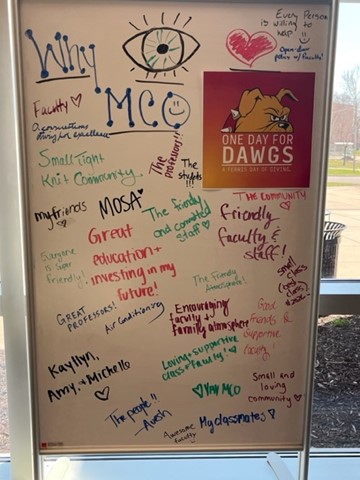 Why
MCO
Every Person
is willing to
help
Open-door
policy w/faculty!
Faculty
ONE DAY FOR
DAWGS
A FERRIS DAY OF GIVING.
Small tight
Knit Community
The
professors!!
The
my friends
MOSA
The friendly
and committed
staff
THE COMMUNITY
friendly
faculty &
staff!
Great
education +
investing in my
future!
Everyone
is super
friendly!
The Friendly
Atmosphere!
small
class
size
GREAT
PROFESSORS!
Air Conditioning
Encouraging
faculty +
Family atmosphere
Good
friends &
supportive
faculty!
Kayllyn,
Amy, + Michelle
Loving + supportive
class + Faculty!
Yay MCO
Small and
loving
community
The people!!
My classmates
Awesome
faculty